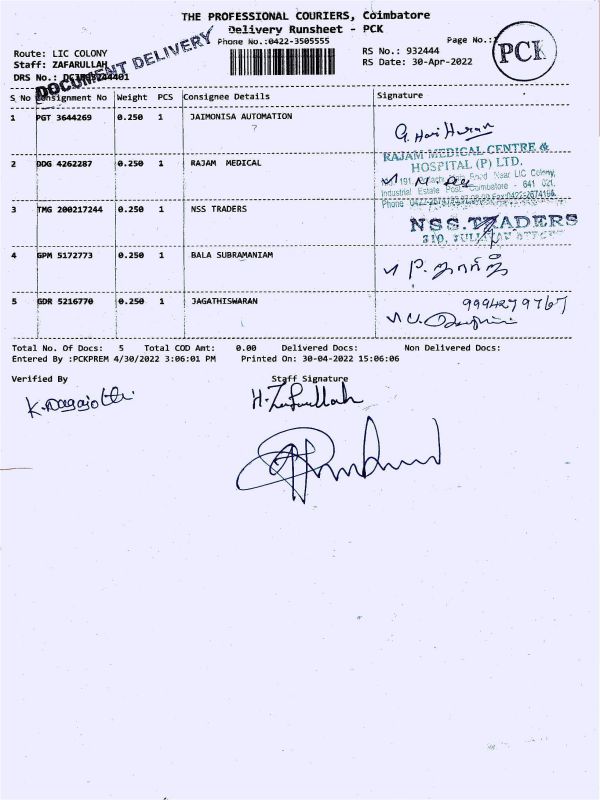 THE PROFESSIONAL COURIERS, Coimbatore
Delivery Runsheet - PCK
Phone No.:0422-3505555
Page No.:
PCK
Route: LIC COLONY
RS No.: 932444
Staff: ZAFARULLAH
RS Date: 30-Apr-2022
DRS No.:
DOCUMENT DELIVERY
S No Consignment No Weight PCS Consignee Details Signature
1 PGT 3644269 0.250 1 JAIMONISA AUTOMATION
?
G. Hari Haran
2 DDG 4262287 0.250 1 RAJAM MEDICAL
RAJAM MEDICAL CENTRE &
HOSPITAL (P) LTD.
191, Road Near LIC Colony,
Industrial Estate Post Coimbatore - 641 021.
Phone
3 TMG 200217244 0.250 1 NSS TRADERS
NSS.TRADERS
310,
4 GPM 5172773 0.250 1 BALA SUBRAMANIAM
P.
5 GDR 5216770 0.250 1 JAGATHISWARAN
9994279767
Total No. Of Docs: 5 Total COD Amt: 0.00 Delivered Docs: Non Delivered Docs:
Entered By :PCKPREM 4/30/2022 3:06:01 PM Printed On: 30-04-2022 15:06:06
Verified By
Staff Signature
K. Nagajothi
H. Zafarullah